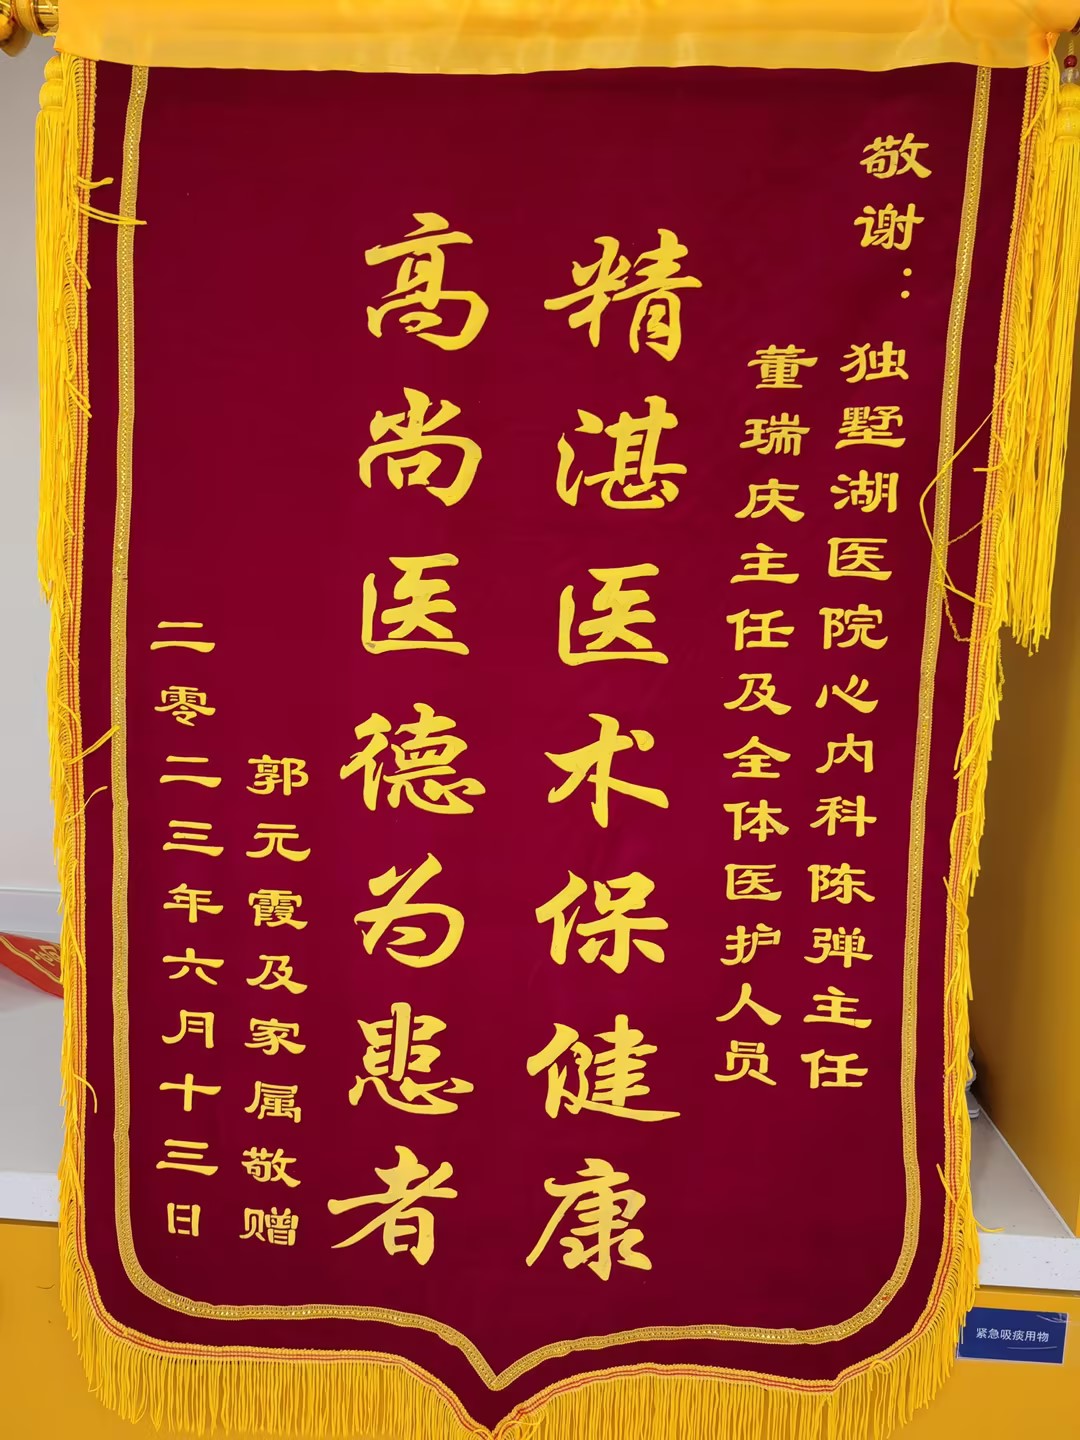 敬谢：独墅湖医院心内科陈弹主任
董瑞庆主任及全体医护人员
精湛医术保健康
高尚医德为患者
郭元霞及家属敬赠
二零二三年六月十三日
紧急吸痰用物